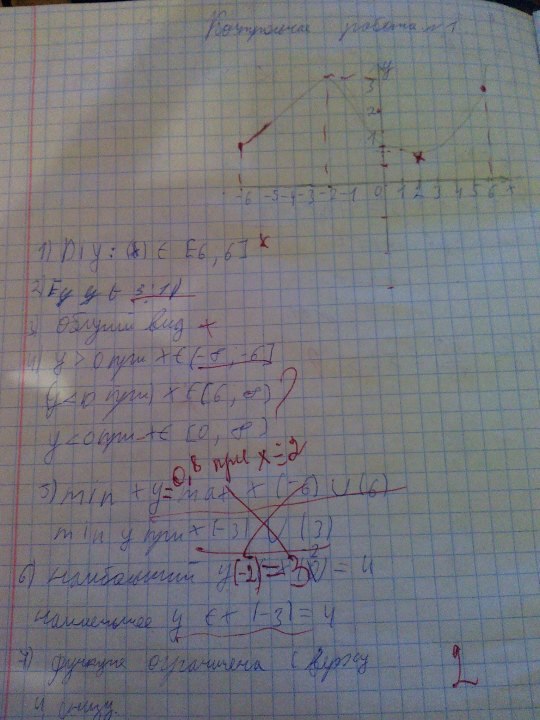 Контрольная работа №1
y
3
2
1
-6 -5 -4 -3 -2 -1 0 1 2 3 4 5 6 x
1) D(y): (x) ∈ [6, 6]
2) Ey y ∈ 3;1
3) общий вид
4) y > 0 при x ∈ (-∞, -6]
y < 0 при x ∈ [6, ∞)
y < 0 при x ∈ [0, ∞]
0,8 при x = 2
5) min x y = max x (-6) ∪ (6)
min y при x (-3) ∪ (3)
6) наибольший y(-2) = 3 = 4
наименьшее y ∈ x (-3) = 4
7) функция ограничена сверху
и снизу.
2